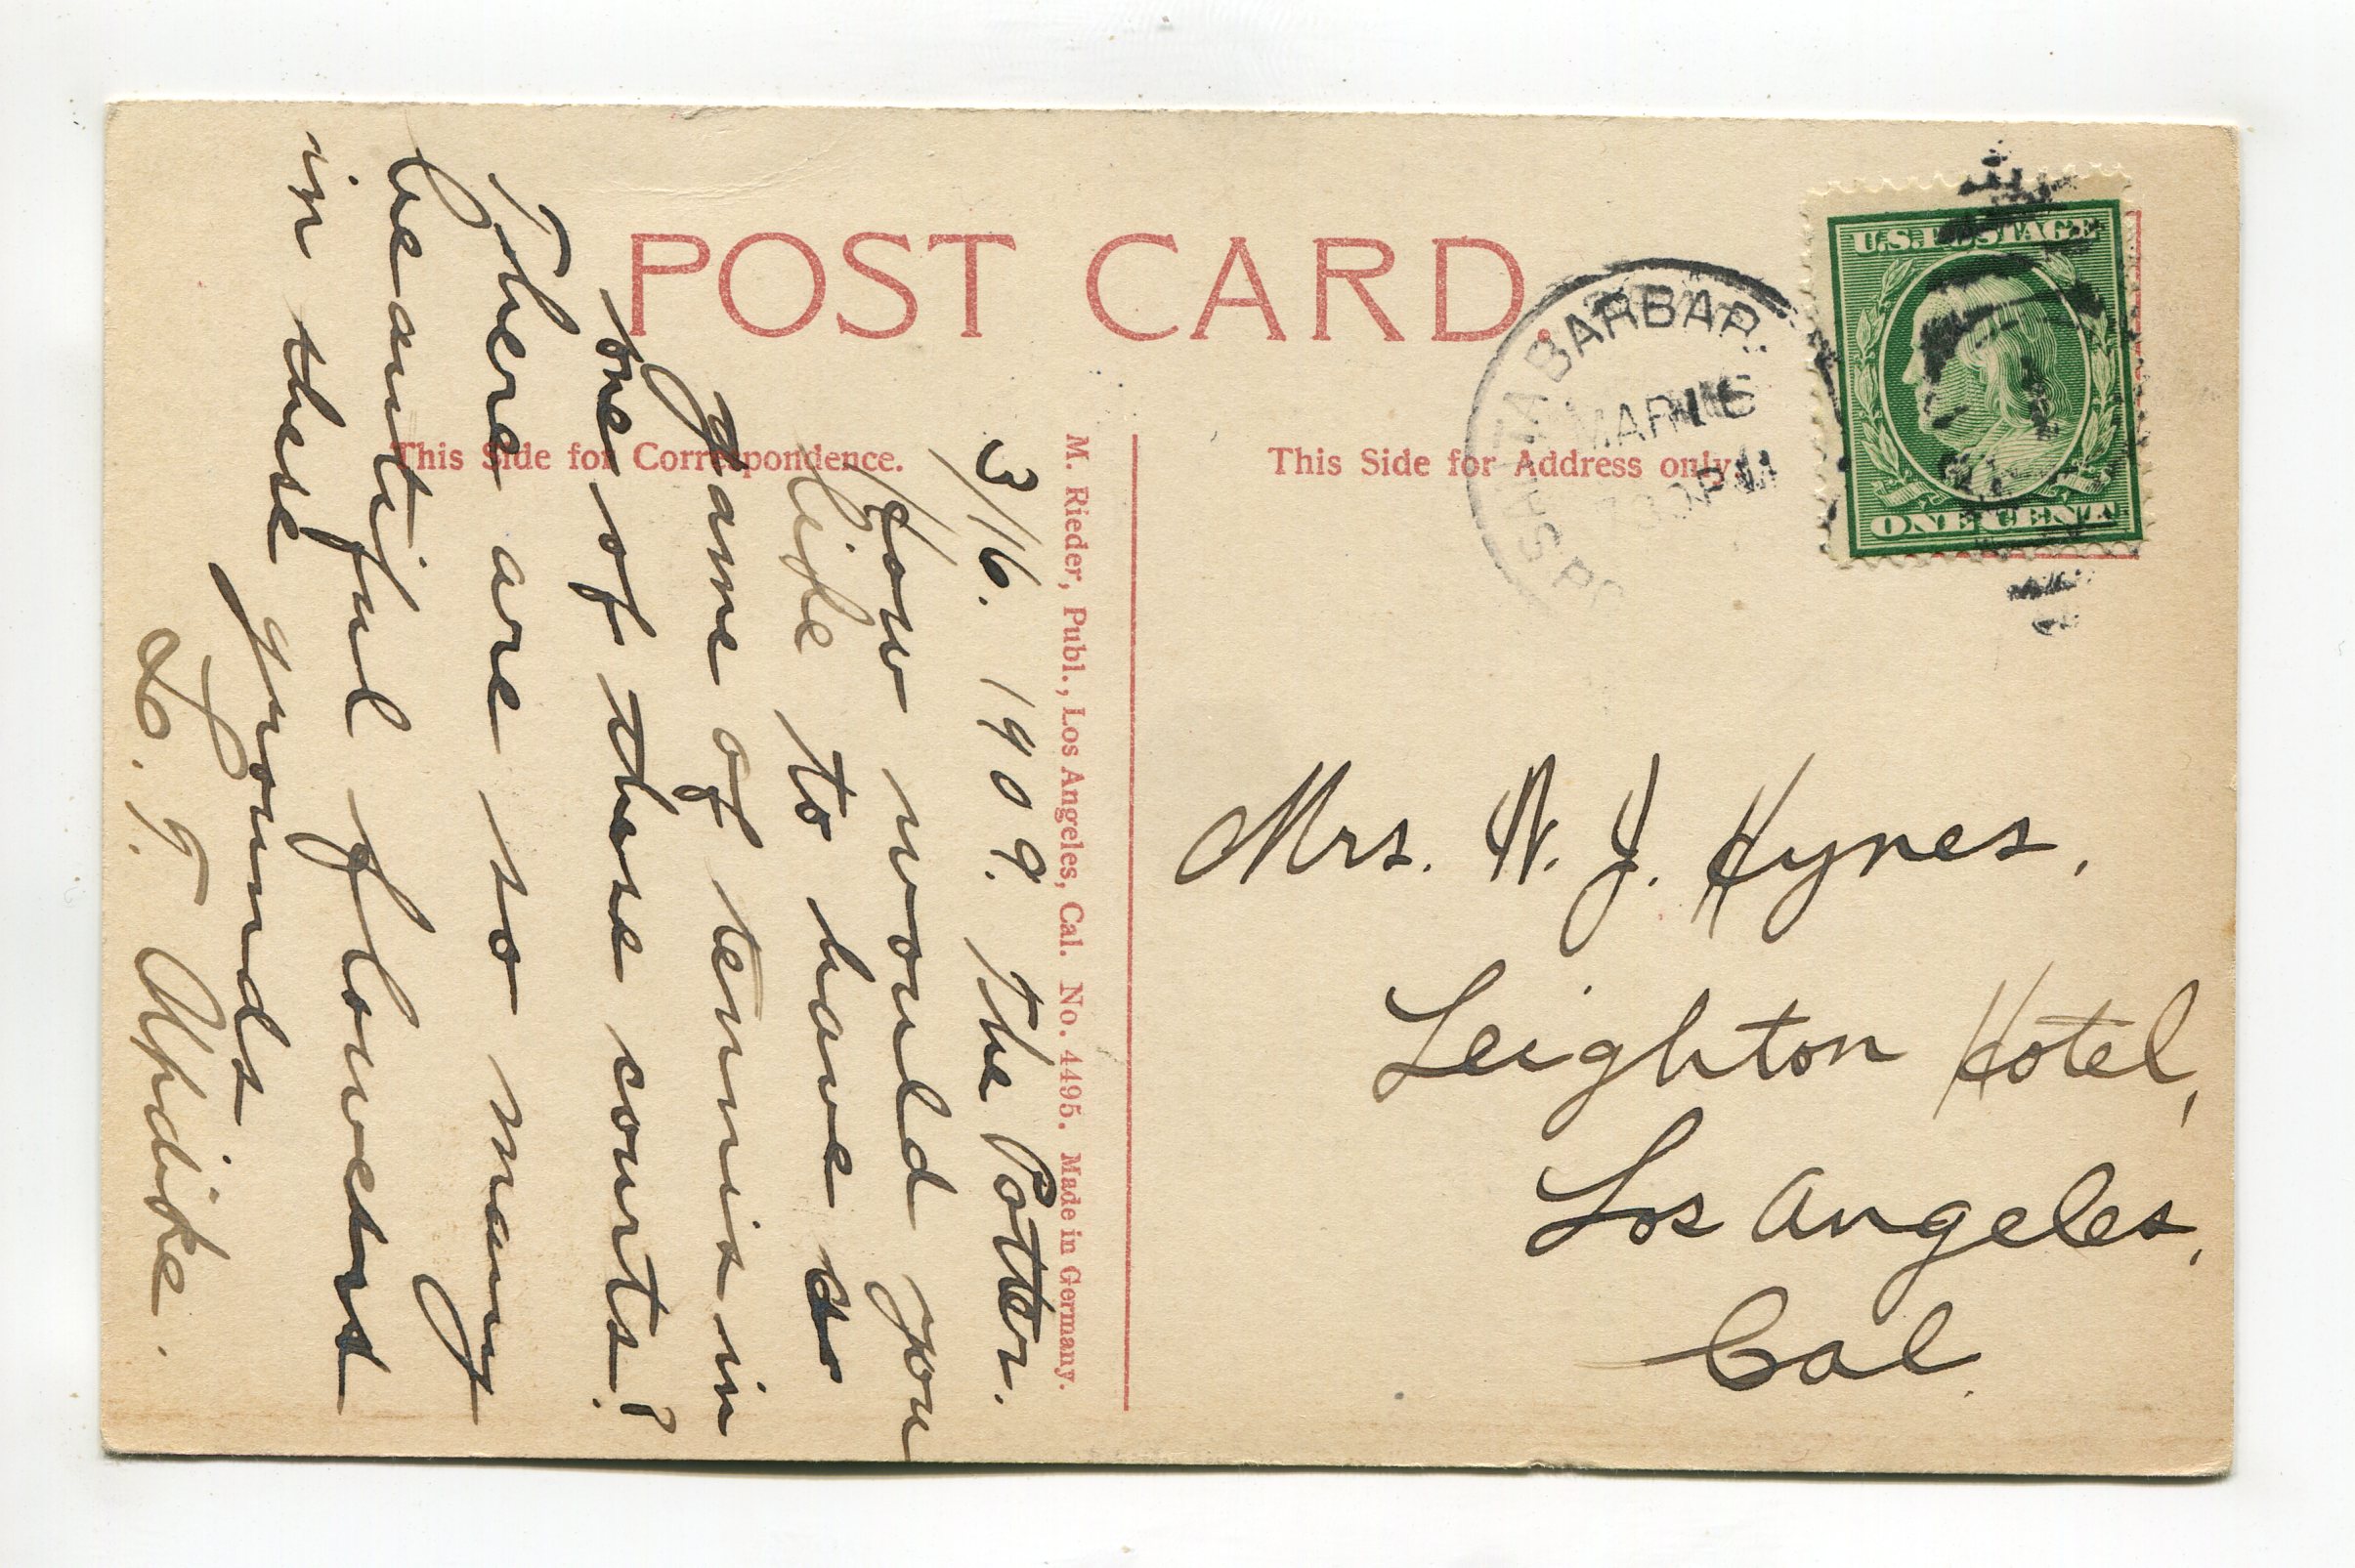 POST CARD.
This Side for Correspondence.
This Side for Address only.
SANTA BARBAR
MAR 16
730 PM
U.S. POSTAGE
ONE CENT
M. Rieder, Publ., Los Angeles, Cal. No. 4495. Made in Germany.
3/16. 1909. The Potter.
How would you
like to have a
game of tennis in
one of these courts?
There are so many
beautiful flowers
in these grounds
Updike.
Mrs. N. J. Hynes,
Leighton Hotel,
Los Angeles,
Cal.